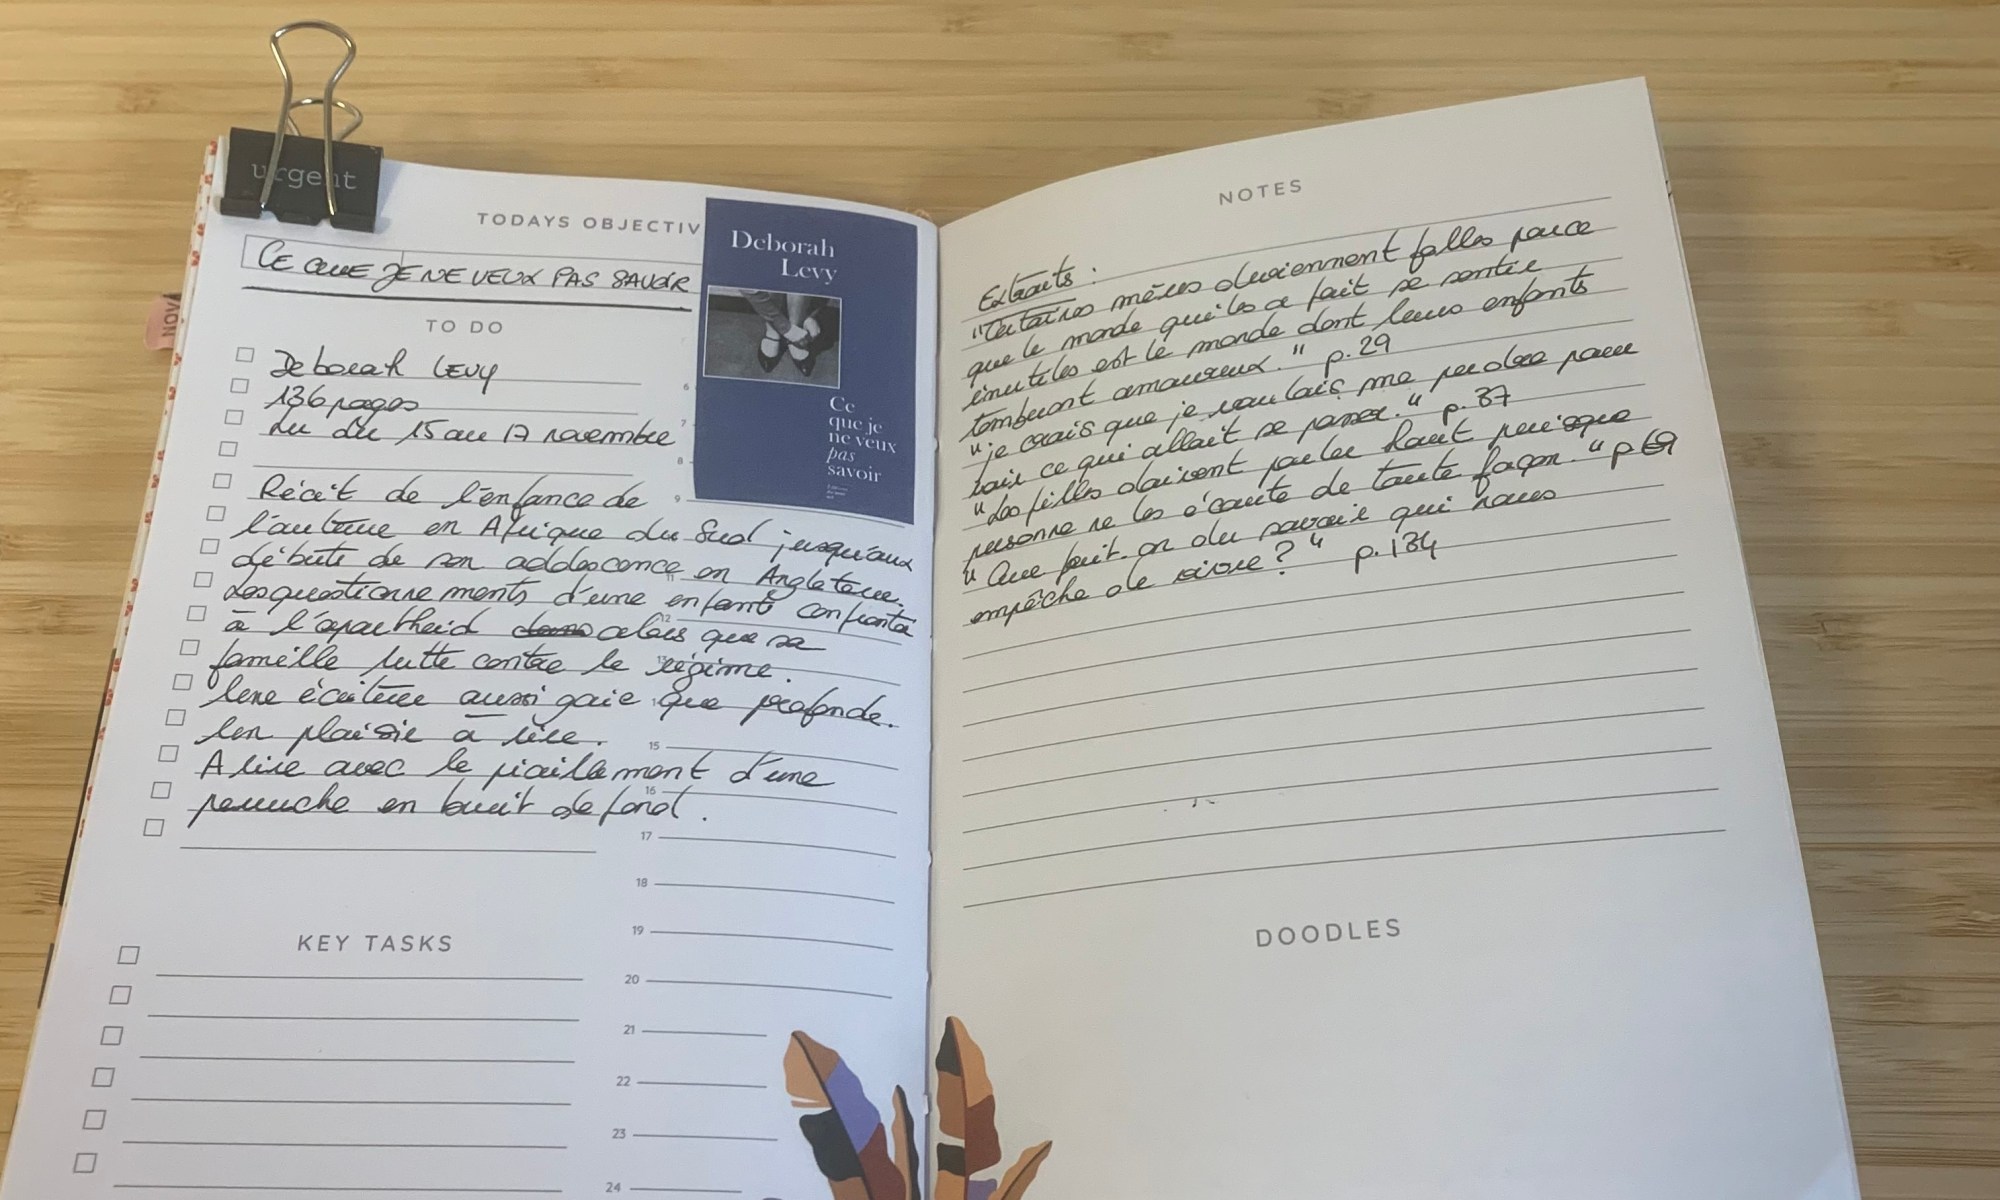 urgent
TODAYS OBJECTIV
CE QUE JE NE VEUX PAS SAVOIR
NOV
TO DO
Deborah LEVY
136 pages
Lu du 15 au 17 novembre
Récit de l'enfance de
l'auteure en Afrique du Sud jusqu'aux
débuts de son adolescence en Angleterre.
Les questionnements d'une enfant confrontée
à l'apartheid dans alors que sa
famille lutte contre le régime.
Une écriture aussi gaie que profonde.
Un plaisir à lire.
A lire avec le piaillement d'une
perruche en bruit de fond.
Deborah
Levy
Ce
que je
ne veux
pas
savoir
6
7
8
9
11
12
15
16
17
18
19
20
21
22
23
24
KEY TASKS
NOTES
Extraits :
"Certaines mères deviennent folles parce
que le monde qui les a fait se sentir
inutiles est le monde dont leurs enfants
tomberont amoureux." p.29
"je crois que je voulais me perdre pour
voir ce qui allait se passer." p.37
"Les filles doivent parler haut puisque
personne ne les écoute de toute façon." p 69
"Que fait-on du savoir qui nous
empêche de vivre ?" p.134
DOODLES